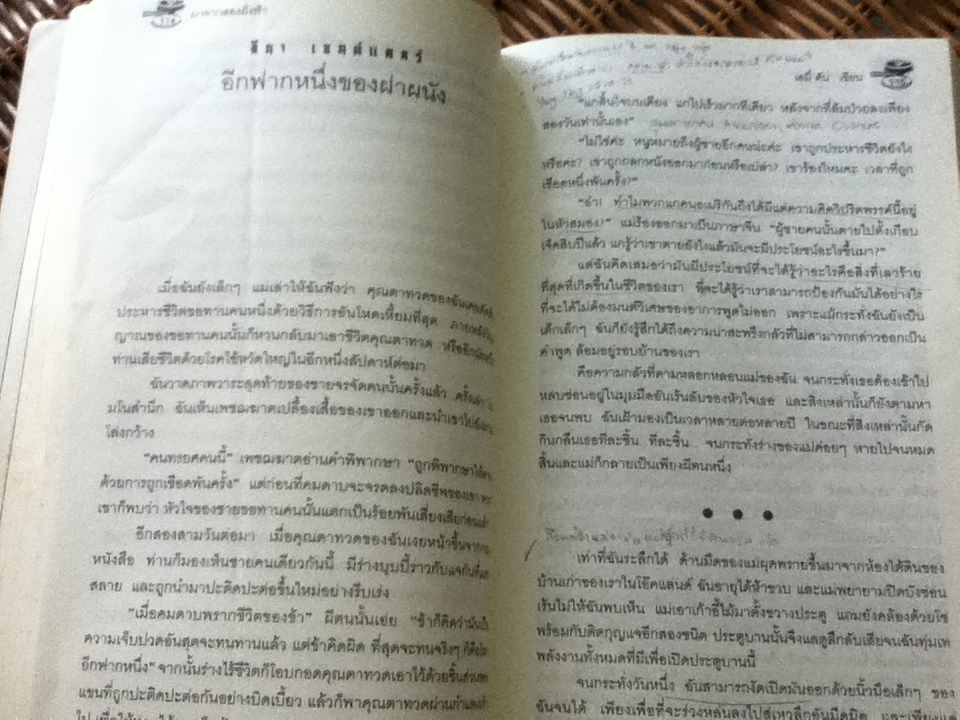 มาจากสองฝั่งฟ้า
ลีนา เซนต์แคลร์
อีกฟากหนึ่งของฝาผนัง
เมื่อฉันยังเล็กๆ แม่เล่าให้ฉันฟังว่า คุณตาทวดของฉันเคยตัดสิน
ประหารชีวิตขอทานคนหนึ่งด้วยวิธีการอันโหดเหี้ยมที่สุด ภายหลังวิญ
ญาณของขอทานคนนั้นก็หวนกลับมาเอาชีวิตคุณตาทวด หรืออีกนัยหนึ่ง
ท่านเสียชีวิตด้วยโรคไข้หวัดใหญ่ในอีกหนึ่งสัปดาห์ต่อมา
ฉันวาดภาพวาระสุดท้ายของชายจรจัดคนนั้นครั้งแล้ว ครั้งเล่า
มโนสำนึก ฉันเห็นเพชฌฆาตเปลื้องเสื้อของเขาออกและนำเขาไปยัง
โล่งกว้าง
"คนทรยศคนนี้" เพชฌฆาตอ่านคำพิพากษา "ถูกพิพากษาให้ตาย
ด้วยการถูกเชือดพันครั้ง" แต่ก่อนที่คมดาบจะจรดลงปลิดชีพของเขา
เขาก็พบว่า หัวใจของชายขอทานคนนั้นแตกเป็นร้อยพันเสี่ยงเสียก่อนแล้ว
อีกสองสามวันต่อมา เมื่อคุณตาทวดของฉันเงยหน้าขึ้นจากกอง
หนังสือ ท่านก็มองเห็นชายคนเดียวกันนี้ มีร่างบุบบี้ราวกับแจกันที่แตก
สลาย และถูกนำมาปะติดปะต่อขึ้นใหม่อย่างรีบเร่ง
"เมื่อคมดาบพรากชีวิตของข้า" ผีตนนั้นเอ่ย "ข้าก็คิดว่านั่นเป็น
ความเจ็บปวดอันสุดจะทนทานแล้ว แต่ข้าคิดผิด ที่สุดจะทนจริงๆ ก็คือ
อีกฟากหนึ่ง" จากนั้นร่างไร้ชีวิตก็โอบกอดคุณตาทวดเอาไว้ด้วยชิ้นส่วน
แขนที่ถูกปะติดปะต่อกันอย่างบิดเบี้ยว แล้วก็พาคุณตาทวดผ่านกำแพง
เอมี่ ตัน เขียน
"แกสิ้นใจบนเตียง แกไปเร็วมากทีเดียว หลังจากที่ล้มป่วยลงเพียง
สองวันเท่านั้นเอง"
"ไม่ใช่ค่ะ หนูหมายถึงผู้ชายอีกคนน่ะค่ะ เขาถูกประหารชีวิตยังไง
หรือคะ? เขาถูกถลกหนังออกมาก่อนหรือเปล่า? เขาร้องไหมคะ เวลาที่ถูก
เชือดหนึ่งพันครั้ง?"
"อ๋า! ทำไมพวกแกคนอเมริกันถึงได้มีแต่ความคิดวิปริตพรรค์นี้อยู่
ในหัวสมอง?" แม่ร้องออกมาเป็นภาษาจีน "ผู้ชายคนนั้นตายไปตั้งเกือบ
เจ็ดสิบปีแล้ว แกรู้ว่าเขาตายยังไงแล้วมันจะมีประโยชน์อะไรขึ้นมา?"
แต่ฉันคิดเสมอว่ามันมีประโยชน์ที่จะได้รู้ว่าอะไรคือสิ่งที่เลวร้าย
ที่สุดที่เกิดขึ้นในชีวิตของเรา ที่จะได้รู้ว่าเราสามารถป้องกันมันได้อย่างไร
ที่จะได้ไม่ต้องมนต์วิเศษของอาการพูดไม่ออก เพราะแม้กระทั่งฉันยังเป็น
เด็กเล็กๆ ฉันก็ยังรู้สึกได้ถึงความน่าสะพรึงกลัวที่ไม่สามารถกล่าวออกเป็น
คำพูด ล้อมอยู่รอบบ้านของเรา
คือความกลัวที่ตามหลอกหลอนแม่ของฉัน จนกระทั่งเธอต้องเข้าไป
หลบซ่อนอยู่ในมุมมืดอันเร้นลับของหัวใจเธอ และสิ่งเหล่านั้นก็ยังตามหา
เธอจนพบ ฉันเฝ้ามองเป็นเวลาหลายต่อหลายปี ในขณะที่สิ่งเหล่านั้นกัด
กินกลืนเธอทีละชิ้น ทีละชิ้น... จนกระทั่งร่างของแม่ค่อยๆ หายไปจนหมด
สิ้นและแม่ก็กลายเป็นเพียงผีตนหนึ่ง
● ● ●
เท่าที่ฉันระลึกได้ ด้านมืดของแม่ผุดพรายขึ้นมาจากห้องใต้ดินของ
บ้านเก่าของเราในโอ๊คแลนด์ ฉันอายุได้ห้าขวบ และแม่พยายามปิดบังซ่อน
เร้นไม่ให้ฉันพบเห็น แม่เอาเก้าอี้ไม้มาตั้งขวางประตู แถมยังคล้องด้วยโซ่
พร้อมกับติดกุญแจอีกสองชนิด ประตูบานนั้นจึงแลดูลึกลับเสียจนฉันทุ่มเท
พลังงานทั้งหมดที่มีเพื่อเปิดประตูบานนี้
จนกระทั่งวันหนึ่ง ฉันสามารถงัดเปิดมันออกด้วยนิ้วมือเล็กๆ ของ
ฉันจนได้ เพียงเพื่อที่จะร่วงหล่นลงไปสู่เหวลึกอันมืดมิด และเพียงแต่